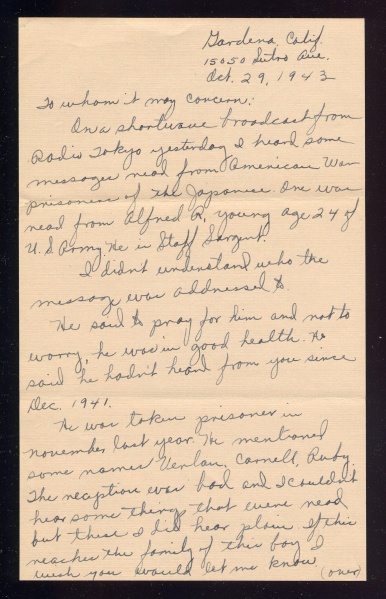 Gardena, Calif
15050 Sutro Ave.
Oct. 29, 1943
To whom it may concern:
On a shortwave broadcast from
Radio Tokyo yesterday I heard some
messages read from American War
prisoners of the Japanese. One was
read from Alfred R. Young age 24 of
U.S. Army. He is Staff Sargent.
I didn't understand who the
message was addressed to.
He said to pray for him and not to
worry, he was in good health. He
said he hadn't heard from you since
Dec. 1941.
He was taken prisoner in
November last year. He mentioned
some names Verlan, Cornell, Ruby
The reception was bad and I couldn't
hear some things that were read
but these I did hear plain. If this
reaches the family of this boy I
wish you would let me know
(over)